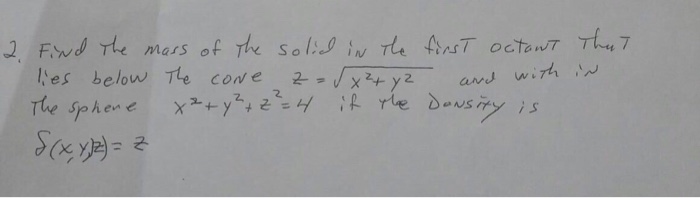 2. Find The mass of The solid in The first octant That
lies below The cone z = √x²+y² and with in
The sphere x²+y²+z²=4 if The Density is
δ(x,y,z) = z